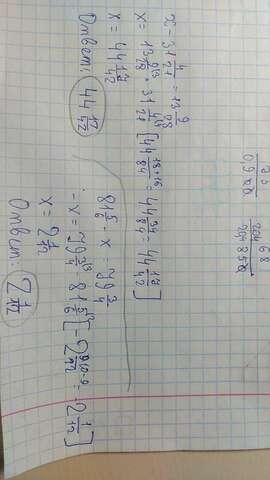 x - 31 4/21 = 13 9/28
x = 13 9/28 + 31 4/21 [44 = 44 34/84 = 44 17/42]
x = 44 17/42
Ответ: 44 17/42
81 5/6 - x = 79 3/4
- x = 79 3/4 - 81 5/6 [- 2 10-9/12 = - 2 1/12]
x = 2 1/12
Ответ: 2 1/12